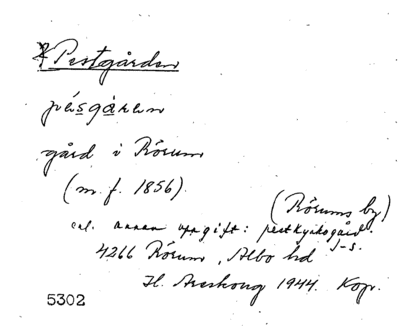 Pestgården
pásgåren
gård i Rörum
(m. f. 1856).
(Rörums by)
enl. annan uppgift: pestkyrkogård.
J-s.
4266 Rörum, Albo hd
H. Areskoug 1944. Kop.
5302